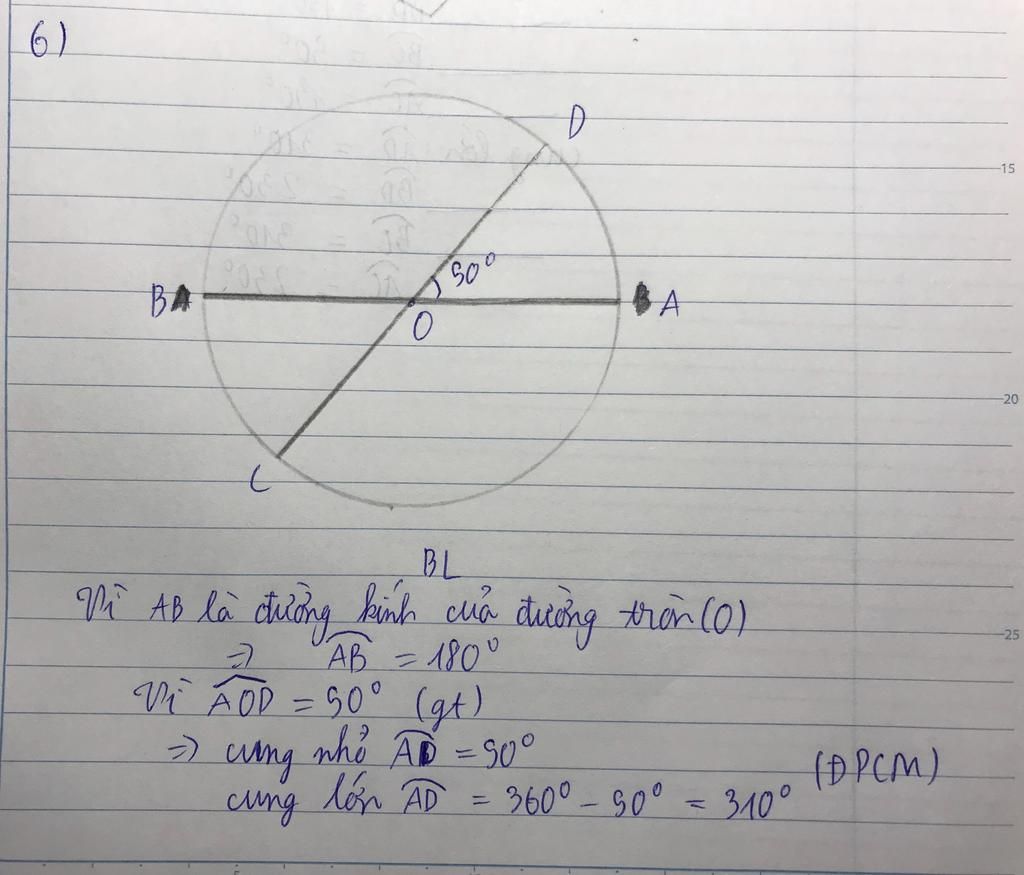 6)
D
15
50°
B A
B A
O
20
C
BL
Vì AB là đường kính của đường tròn (O)
25
=> AB = 180°
Vì AOD = 50° (gt)
=> cung nhỏ AD = 50°
(ĐPCM)
cung lớn AD = 360° - 50° = 310°